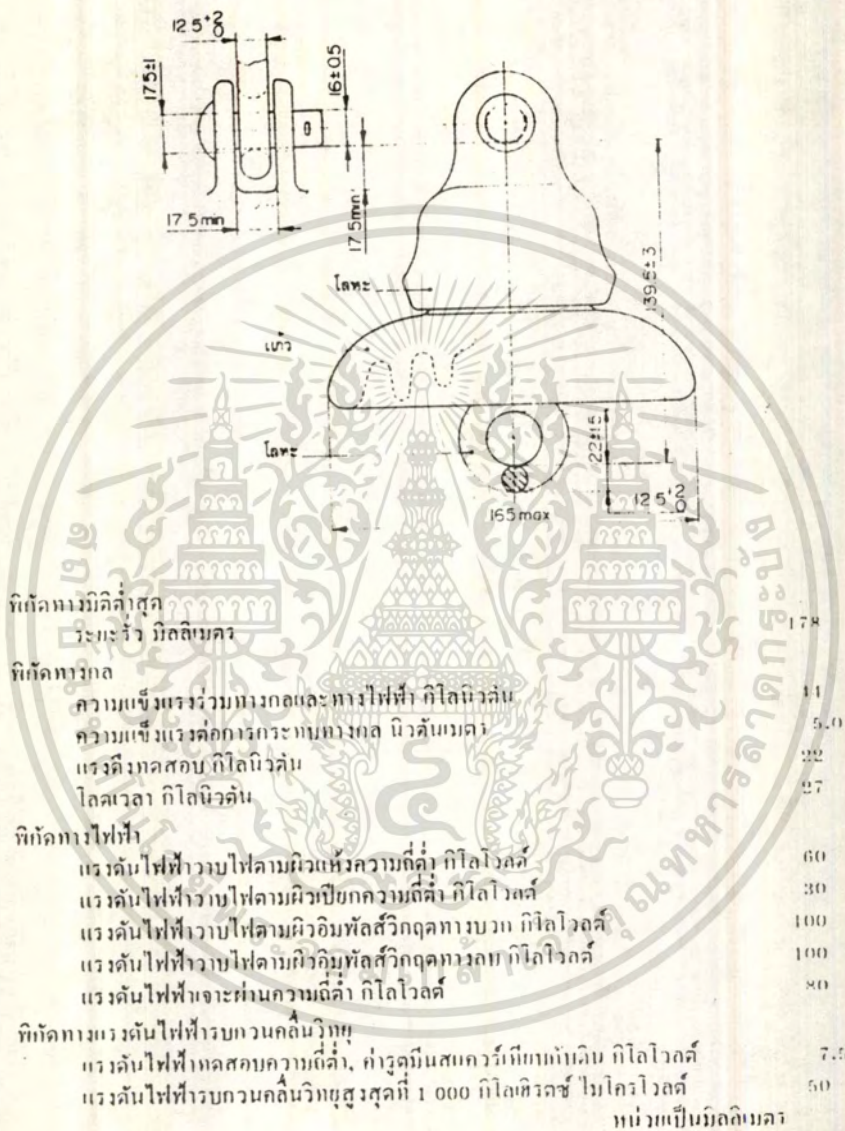 12.5 +2 0
17.5±1
16±0.5
17.5 min
17.5 min
โลหะ
139.5±3
แก้ว
โลหะ
22±1.5
12.5 +2 0
165 max
พิกัดทางมิติต่ำสุด
ระยะรั่ว มิลลิเมตร 178
พิกัดทางกล
ความแข็งแรงร่วมทางกลและทางไฟฟ้า กิโลนิวตัน 44
ความแข็งแรงต่อการกระทบทางกล นิวตันเมตร 5.0
แรงดึงทดสอบ กิโลนิวตัน 22
โลดเวลา กิโลนิวตัน 27
พิกัดทางไฟฟ้า
แรงดันไฟฟ้าวาบไฟตามผิวแห้งความถี่ต่ำ กิโลโวลต์ 60
แรงดันไฟฟ้าวาบไฟตามผิวเปียกความถี่ต่ำ กิโลโวลต์ 30
แรงดันไฟฟ้าวาบไฟตามผิวอิมพัลส์วิกฤตทางบวก กิโลโวลต์ 100
แรงดันไฟฟ้าวาบไฟตามผิวอิมพัลส์วิกฤตทางลบ กิโลโวลต์ 100
แรงดันไฟฟ้าเจาะผ่านความถี่ต่ำ กิโลโวลต์ 80
พิกัดทางแรงดันไฟฟ้ารบกวนคลื่นวิทยุ
แรงดันไฟฟ้าทดสอบความถี่ต่ำ, ค่ารูตมีนสแควร์เทียบกับดิน กิโลโวลต์ 7.5
แรงดันไฟฟ้ารบกวนคลื่นวิทยุสูงสุดที่ 1 000 กิโลเฮิรตซ์ ไมโครโวลต์ 50
หน่วยเป็นมิลลิเมตร
สถาบันเทคโนโลยีพระจอมเกล้าเจ้าคุณทหารลาดกระบัง